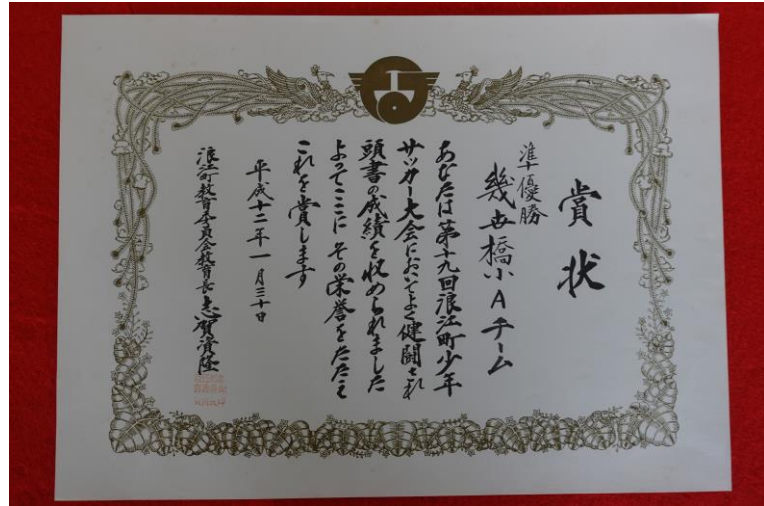 賞状
準優勝
幾世橋小Aチーム
あなたは第十九回浪江町少年
サッカー大会においてよく健闘され
頭書の成績を収められました
よってここにその栄誉をたたえ
これを賞します
平成十二年一月三十日
浪江町教育委員会教育長志賀